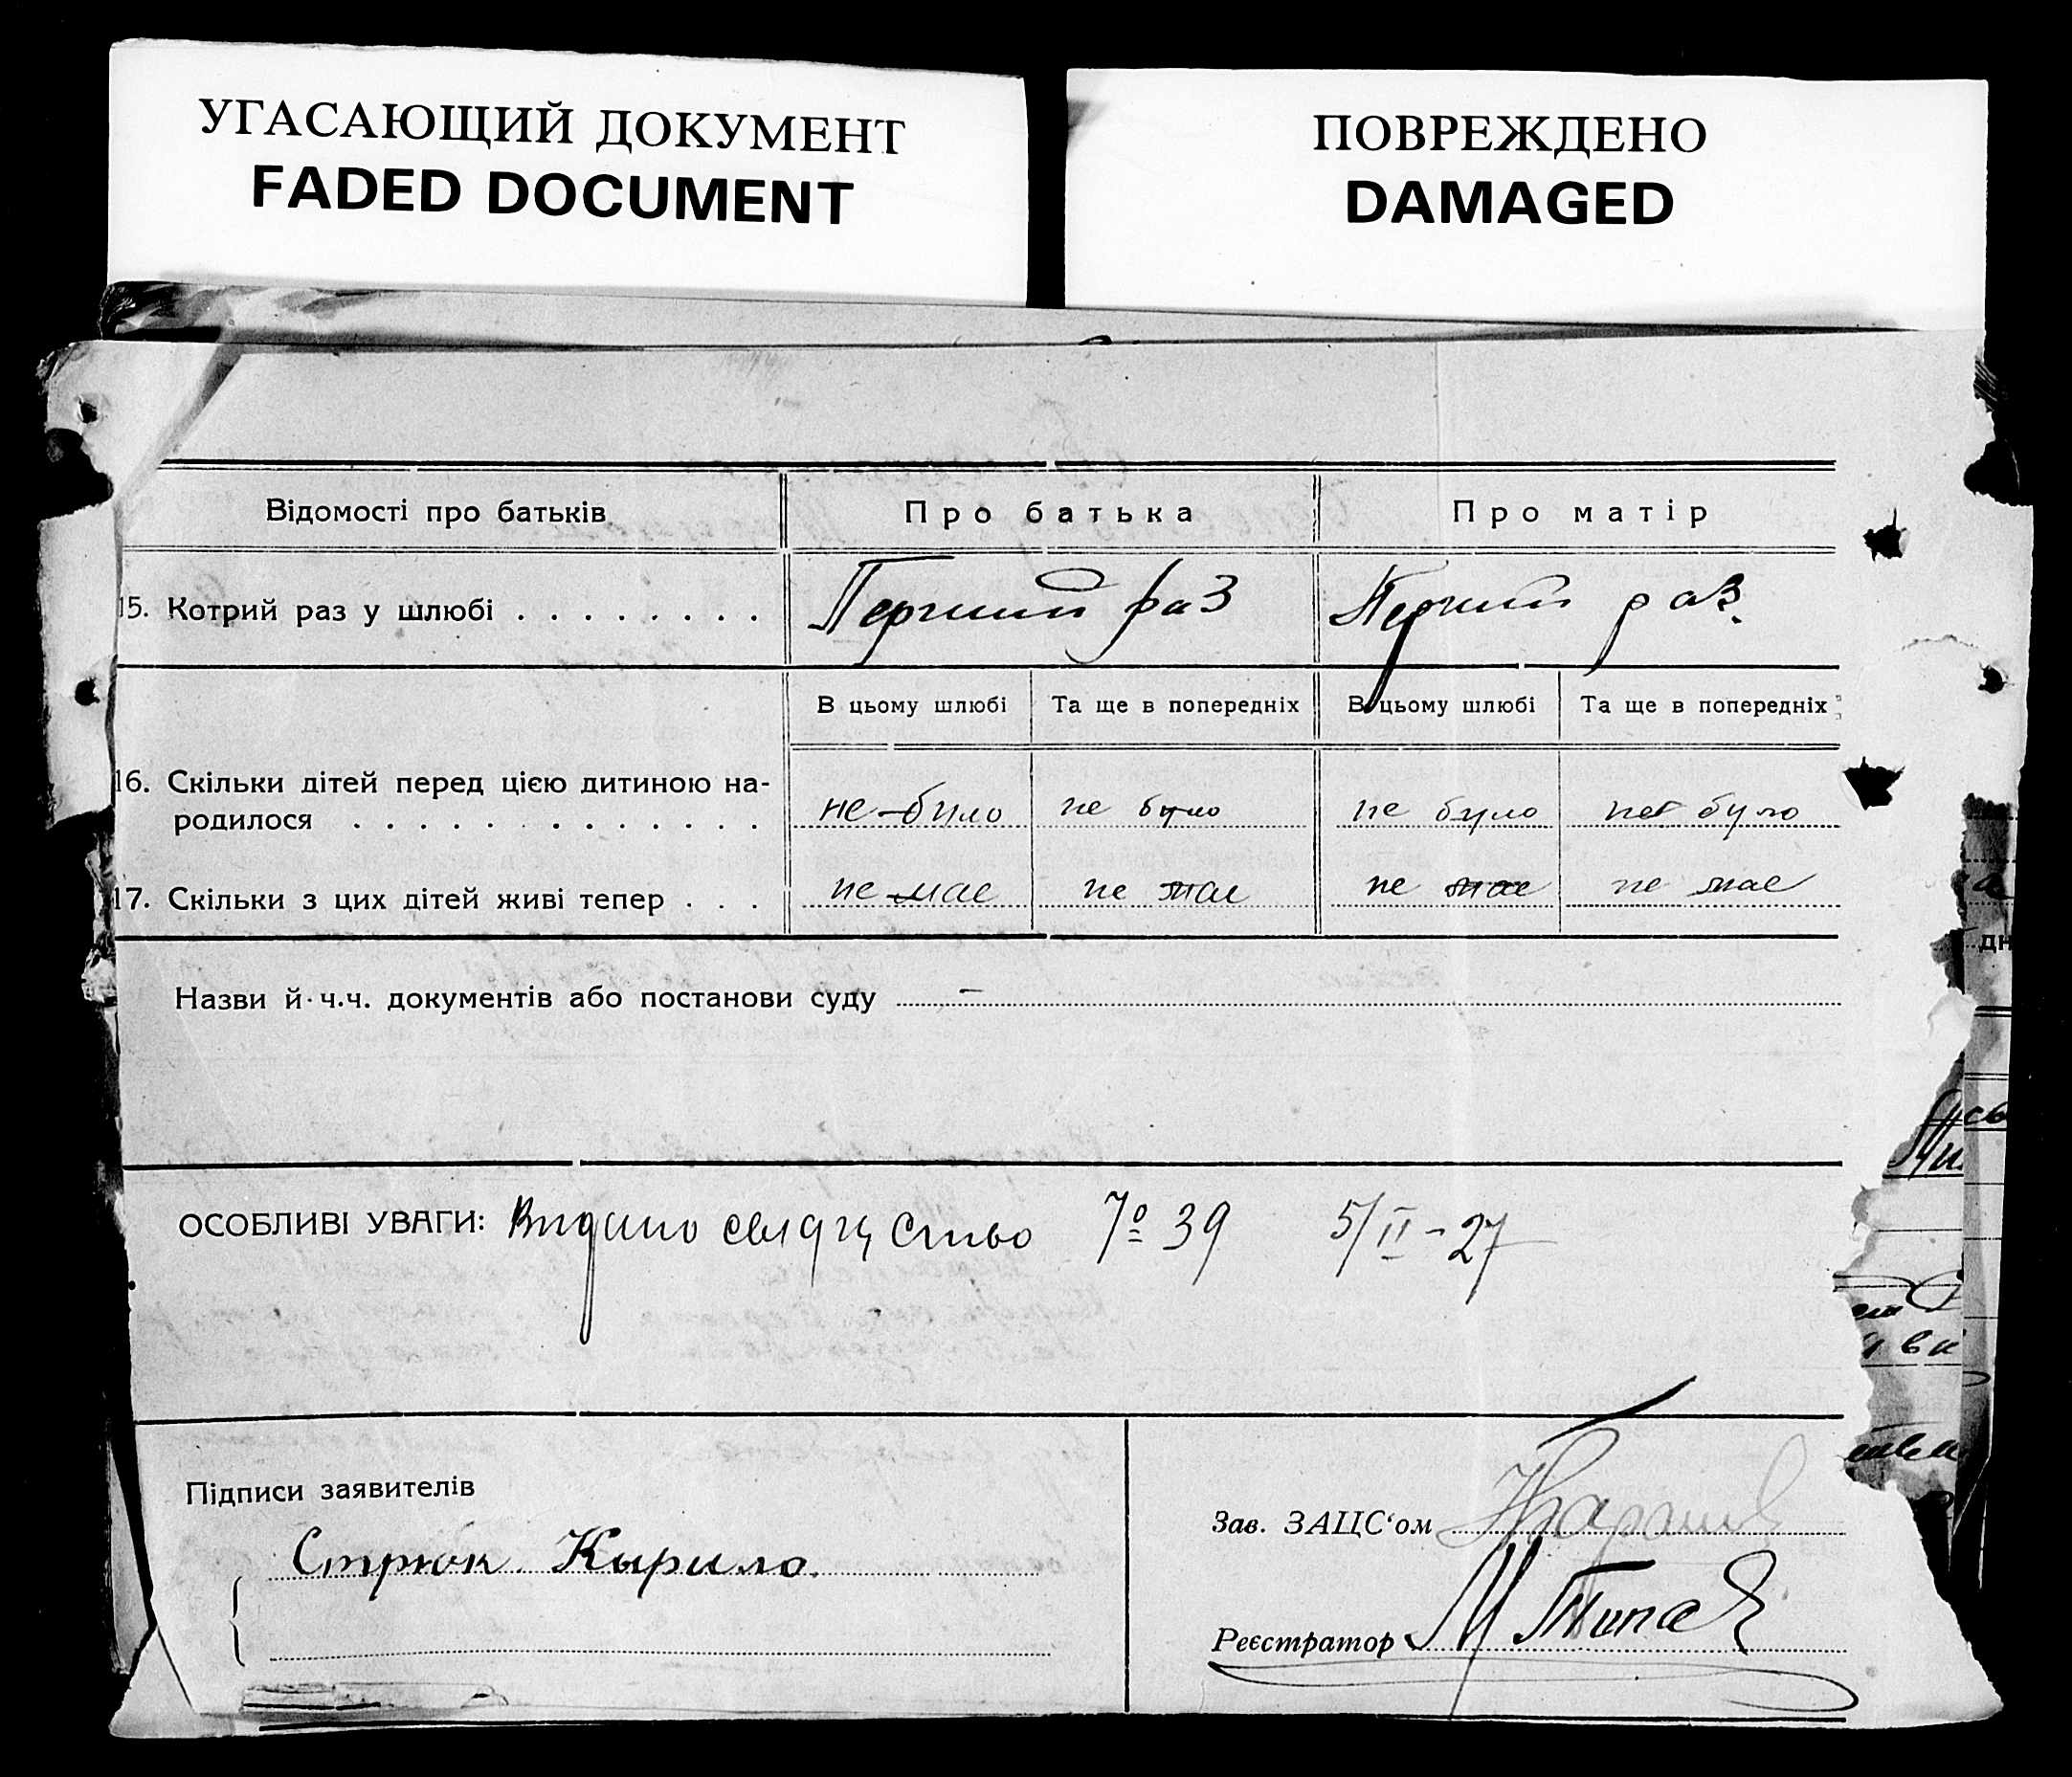 УГАСАЮЩИЙ ДОКУМЕНТ
FADED DOCUMENT
ПОВРЕЖДЕНО
DAMAGED
Відомості про батьків
Про батька
Про матір
15. Котрий раз у шлюбі
Перший раз
Перший раз.
В цьому шлюбі
Та ще в попередніх
В цьому шлюбі
Та ще в попередніх
16. Скільки дітей перед цією дитиною на-
родилося
не було
не було
не було
не було
17. Скільки з цих дітей живі тепер
не має
не має
не має
не має
Назви й ч.ч. документів або постанови суду –
ОСОБЛИВІ УВАГИ: Видано свидоцтво № 39 5/II-27
Підписи заявителів
Стрюк Кырило.
Зав. ЗАЦС‘ом
Реєстратор М